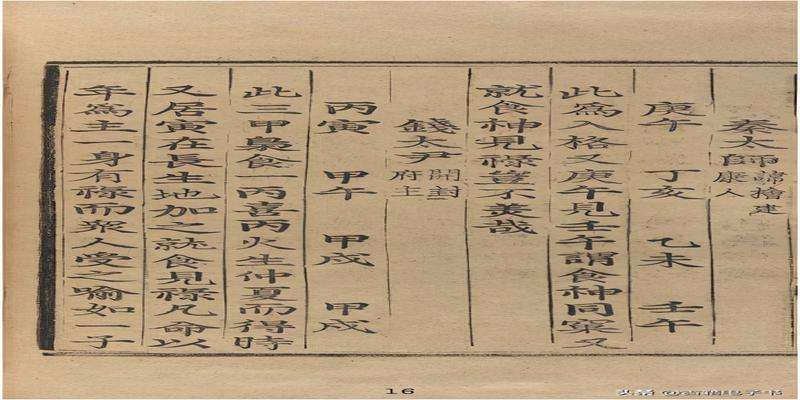 秦太師諱檜建康人
庚午 丁亥 乙未 壬午
此爲入格又庚午見壬午謂食神同窠又
就食神見祿豈不美哉
錢大尹開封府主
丙寅 甲午 甲戌 甲戌
此三甲梟食一丙喜丙火生仲夏而得時
又居寅在長生地加之就食見祿凡命以
年爲主一身有祿而衆人受之喻如一子
16